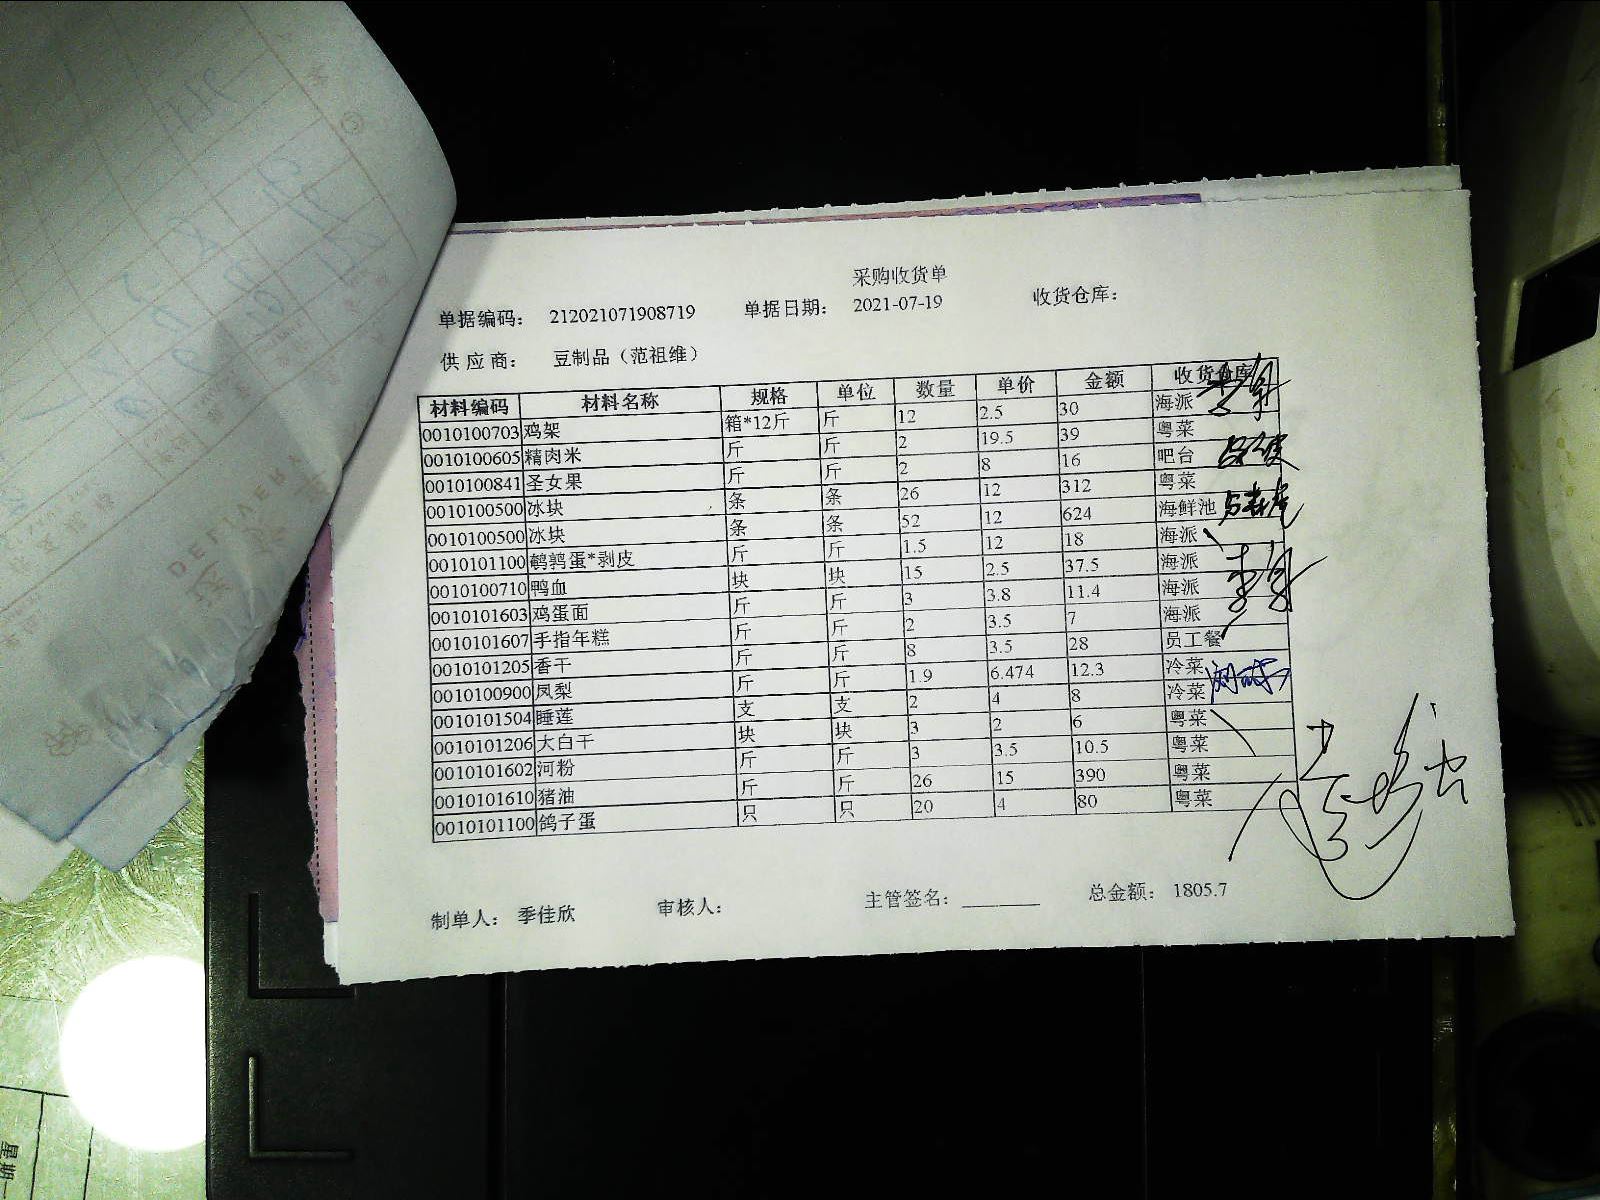 采购收货单
单据编码： 212021071908719 单据日期： 2021-07-19 收货仓库：
供 应 商： 豆制品（范祖维）
材料编码 材料名称 规格 单位 数量 单价 金额 收货仓库
0010100703 鸡架 箱*12斤 斤 12 2.5 30 海派
0010100605 精肉米 斤 斤 2 19.5 39 粤菜
0010100841 圣女果 斤 斤 2 8 16 吧台
0010100500 冰块 条 条 26 12 312 粤菜
0010100500 冰块 条 条 52 12 624 海鲜池
0010101100 鹌鹑蛋*剥皮 斤 斤 1.5 12 18 海派
0010100710 鸭血 块 块 15 2.5 37.5 海派
0010101603 鸡蛋面 斤 斤 3 3.8 11.4 海派
0010101607 手指年糕 斤 斤 2 3.5 7 海派
0010101205 香干 斤 斤 8 3.5 28 员工餐
0010100900 凤梨 斤 斤 1.9 6.474 12.3 冷菜
0010101504 睡莲 支 支 2 4 8 冷菜
0010101206 大白干 块 块 3 2 6 粤菜
0010101602 河粉 斤 斤 3 3.5 10.5 粤菜
0010101610 猪油 斤 斤 26 15 390 粤菜
0010101100 鸽子蛋 只 只 20 4 80 粤菜
制单人： 季佳欣 审核人： 主管签名： ________ 总金额： 1805.7
DELIVERY
星期一